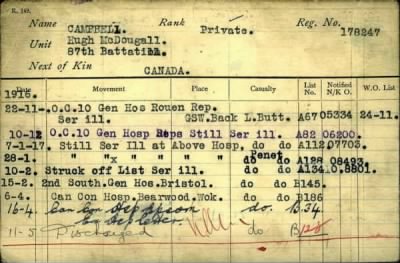 R. 149.
Name CAMPBELL. Rank Private. Reg. No. 178247
Hugh McDougall.
Unit 87th Battation.
Next of Kin CANADA.
Date Movement Place Casualty List No. Notified N/K O. W.O. List
1916.
22-11- O.C.10 Gen Hos Rouen Rep.
Ser ill. GSW.Back L.Butt. A67 05334 24-11.
10-12 O.C.10 Gen Hosp Reps Still Ser ill. A82 06200.
7-1-17 Still Ser Ill at Above Hosp, do do A112. 07703.
28-1. " "x " " " Penet do A128 08493.
10-2. Struck off List Ser ill. do A134 10.8801.
15-2. 2nd South.Gen Hos.Bristol. do do B145.
6-4. Can Con Hosp.Bearwood.Wok. do do B186
16-4. Can Con do. do. B.34.
11-5 Discharged do B